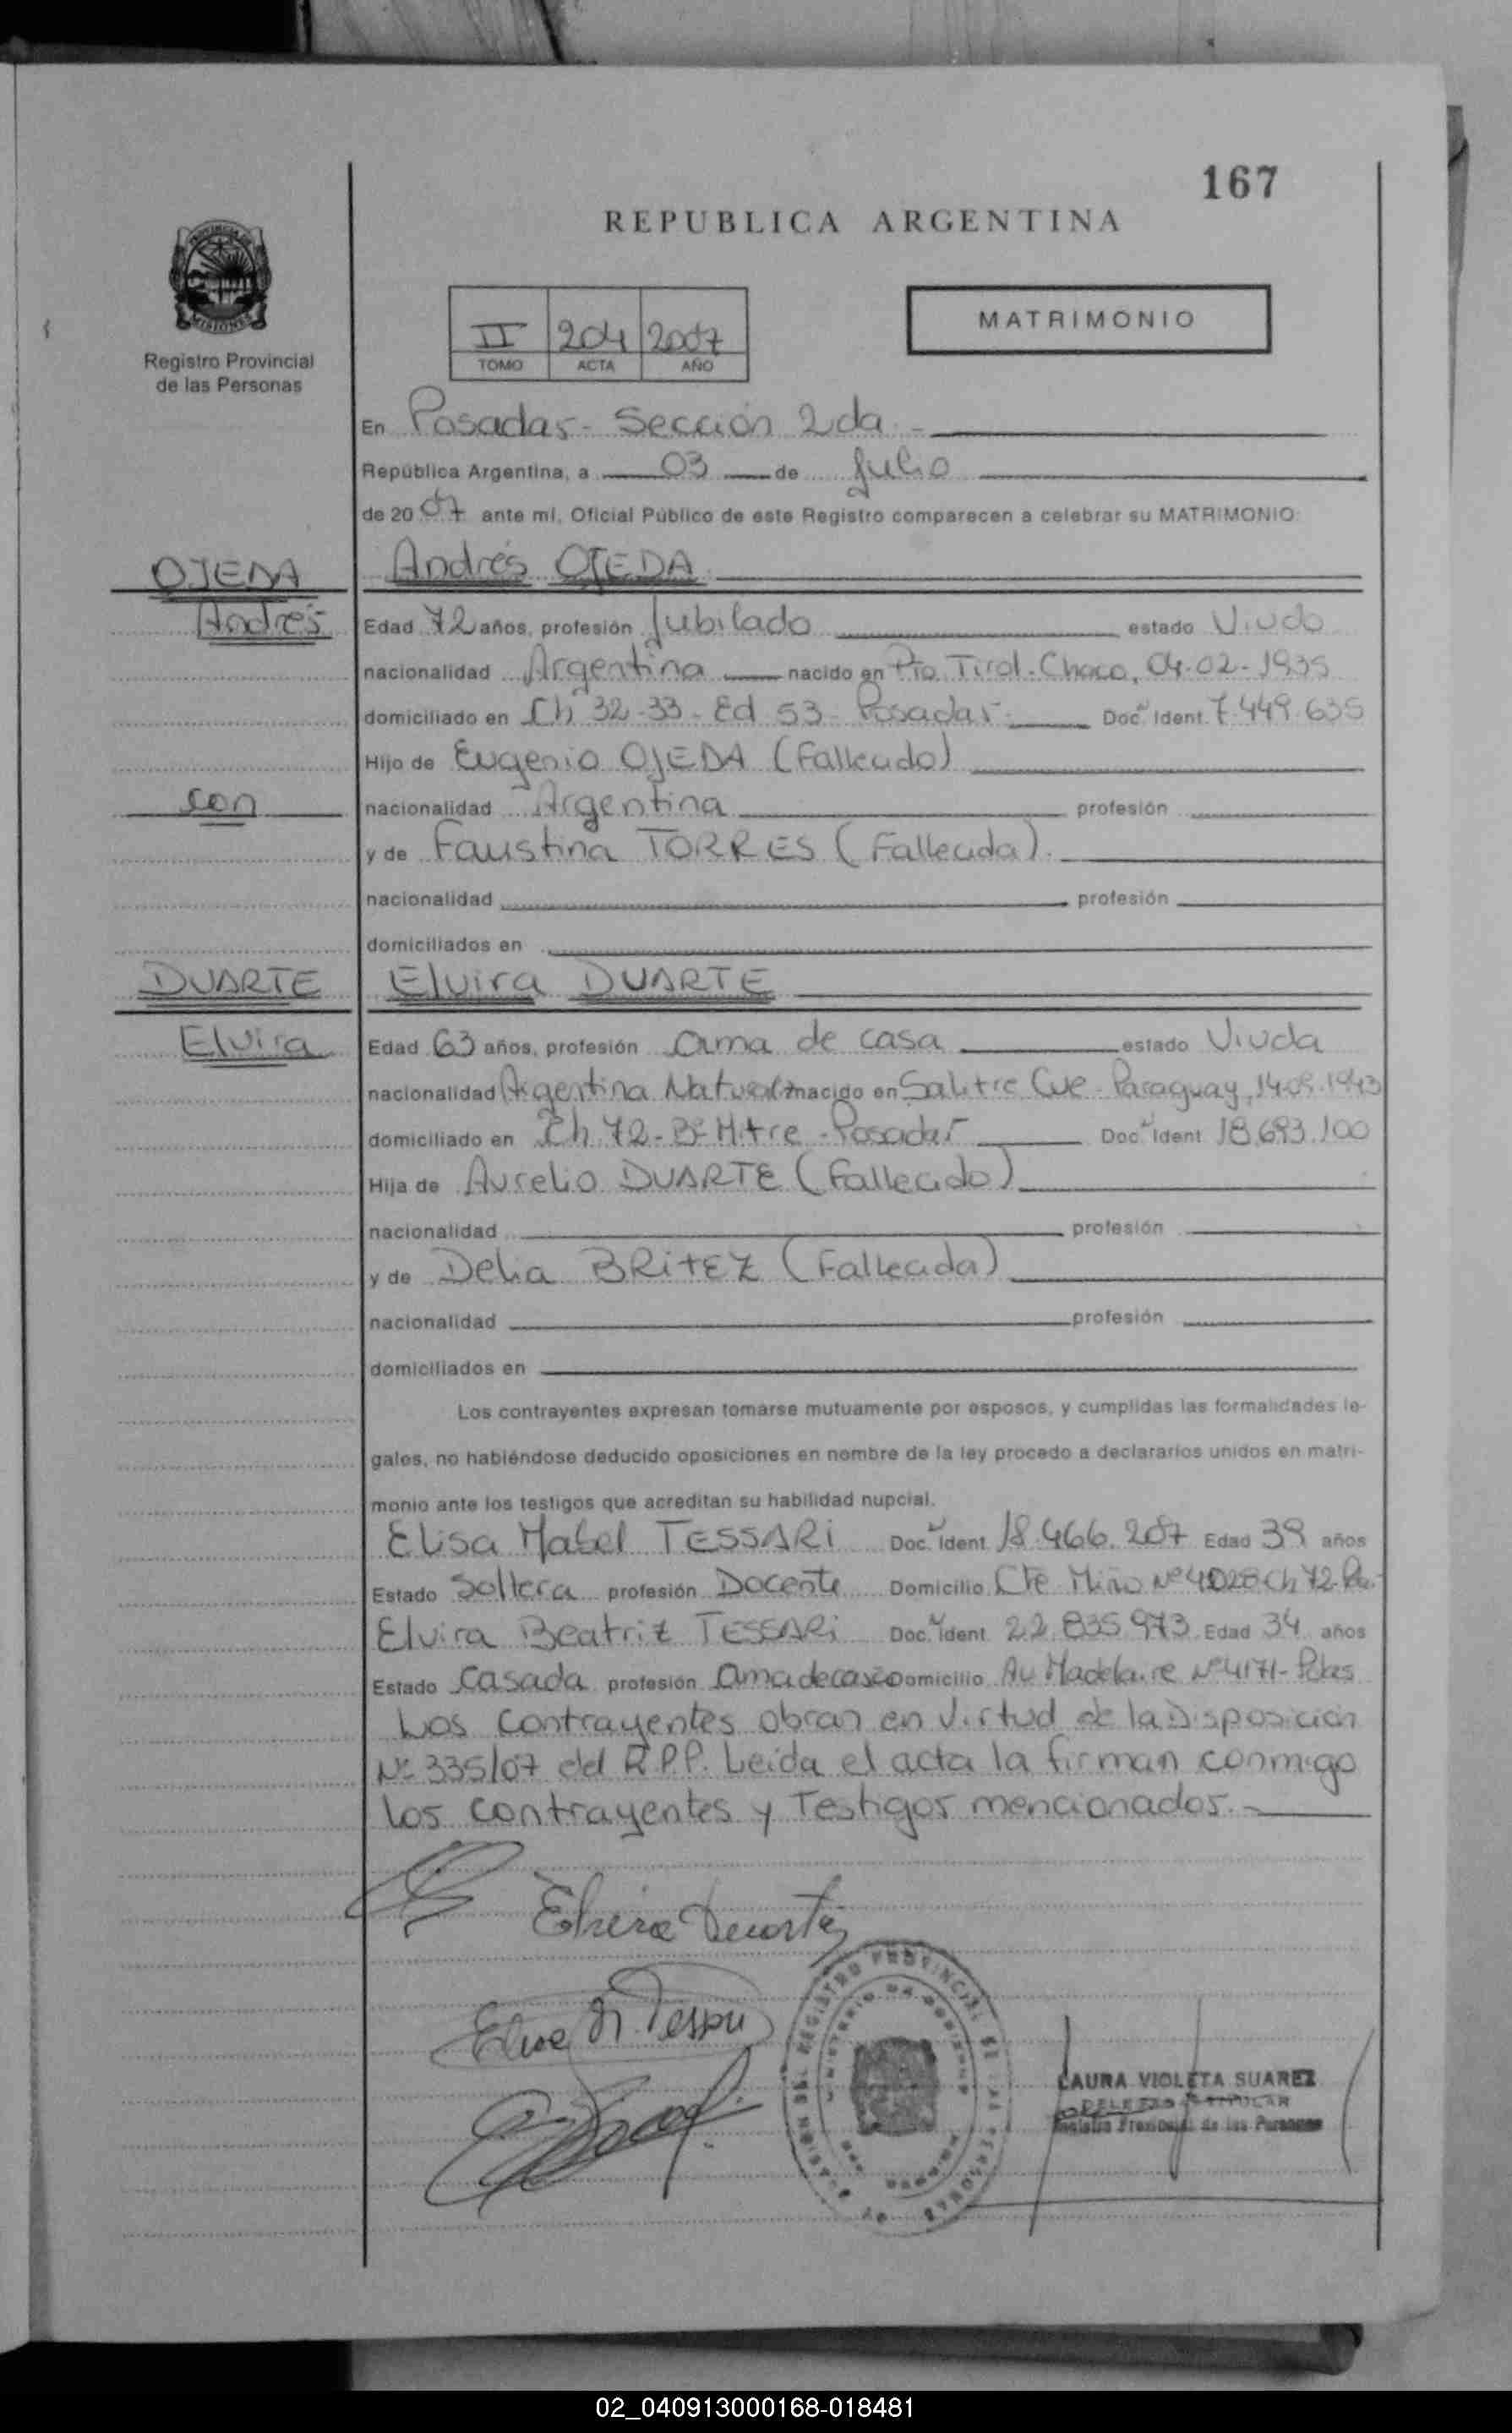 167
REPUBLICA ARGENTINA
PROVINCIA DE
MISIONES
Registro Provincial
de las Personas
II 204 2007
TOMO ACTA AÑO
MATRIMONIO
En Posadas - Sección 2da. -
República Argentina, a 03 de Julio
de 2007 ante mí, Oficial Público de este Registro comparecen a celebrar su MATRIMONIO:
OJEDA Andrés OJEDA
Andrés Edad 72 años, profesión Jubilado estado Viudo
nacionalidad Argentina nacido en Pto Tirol - Chaco, 04-02-1935
domiciliado en Ch 32-33 - Ed 53 - Posadas. Doc. Ident. 7.449.635
Hijo de Eugenio OJEDA (Fallecido)
con nacionalidad Argentina profesión
y de Faustina TORRES (Fallecida).
nacionalidad profesión
domiciliados en
DUARTE Elvira DUARTE
Elvira Edad 63 años, profesión ama de casa estado Viuda
nacionalidad Argentina Naturalz nacido en Salitre Cue - Paraguay, 1943
domiciliado en Ch 72 - Bº Mitre - Posadas Doc. Ident. 18.693.100
Hija de Aurelio DUARTE (Fallecido)
nacionalidad profesión
y de Delia BRITEZ (Fallecida)
nacionalidad profesión
domiciliados en
Los contrayentes expresan tomarse mutuamente por esposos, y cumplidas las formalidades le-
gales, no habiéndose deducido oposiciones en nombre de la ley procedo a declararlos unidos en matri-
monio ante los testigos que acreditan su habilidad nupcial.
Elisa Mabel TESSARI Doc. Ident. 18.466.207 Edad 39 años
Estado Soltera profesión Docente Domicilio Cte Miño Nº 4028 Ch 72
Elvira Beatriz TESSARi Doc. Ident. 22.835.973 Edad 34 años
Estado Casada profesión Ama de casa Domicilio Av Madelaire Nº 4171 - Pdas
Los contrayentes obran en virtud de la Disposición
Nº 335/07 del R.P.P. Leída el acta la firman conmigo
los contrayentes y Testigos mencionados. -
Elvira Duarte
LAURA VIOLETA SUAREZ
Registro Provincial de las Personas
02_040913000168-018481